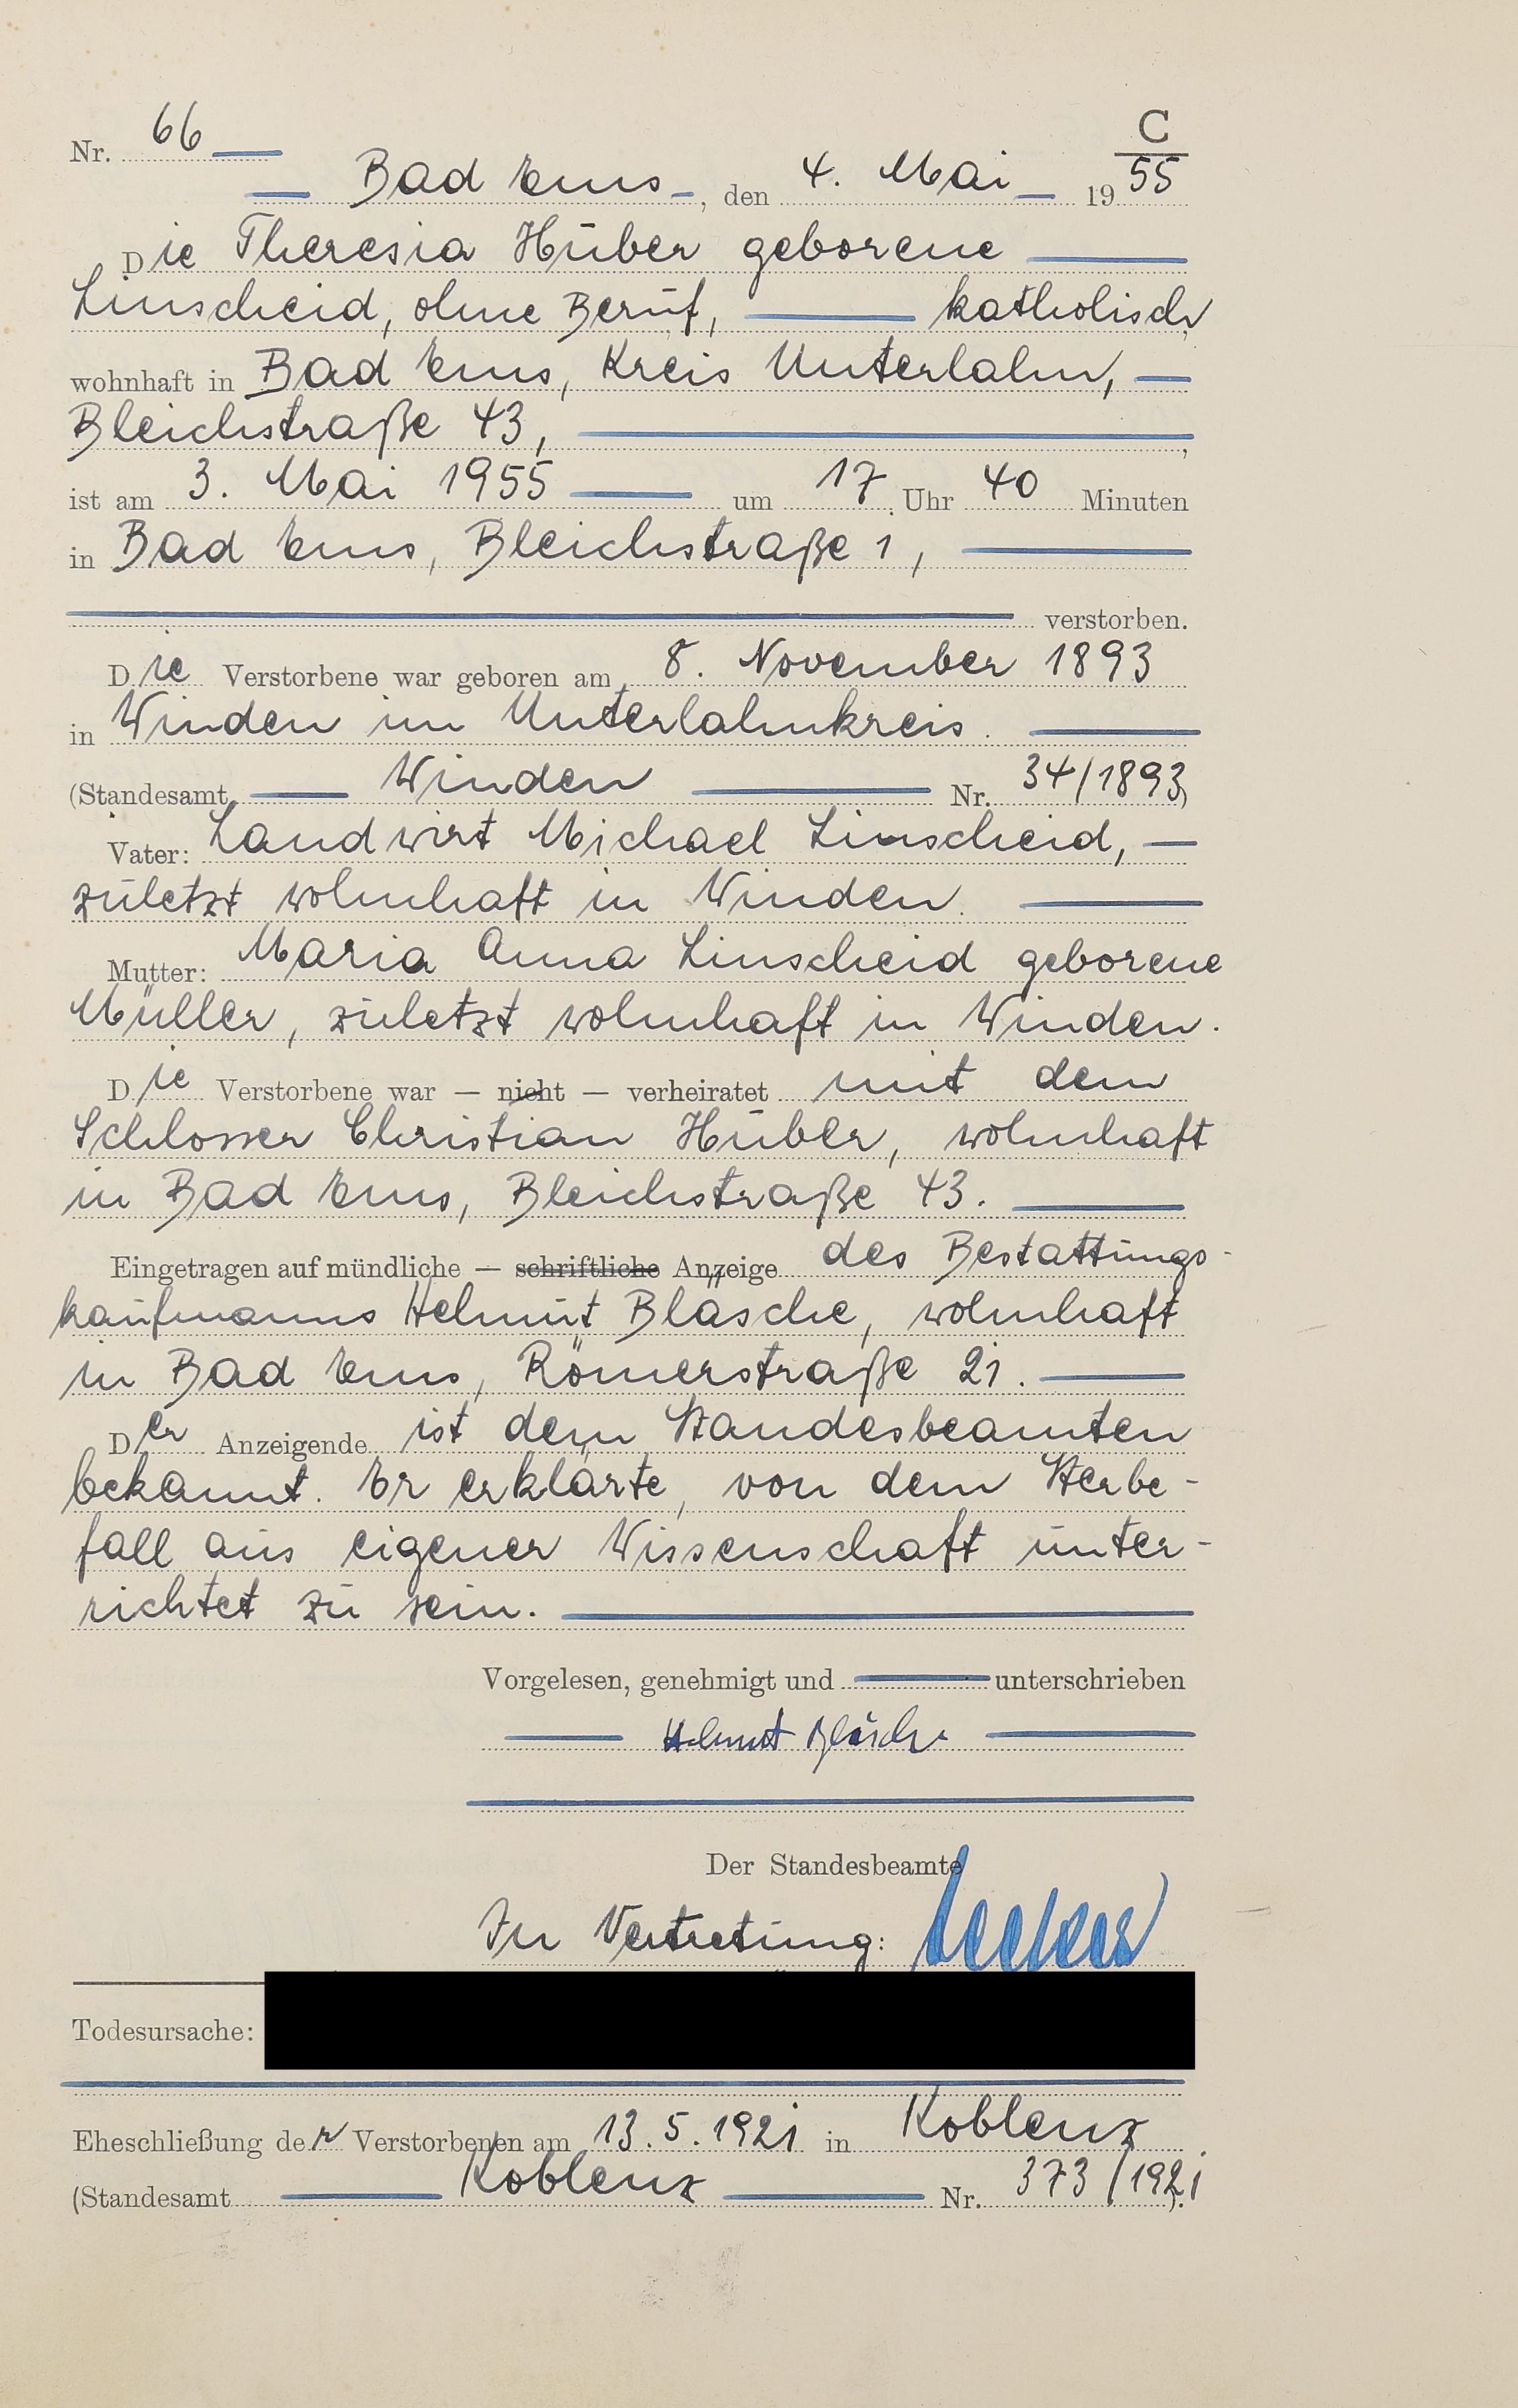 C
Nr. 66
Bad Ems, den 4. Mai 1955
Die Theresia Huber geborene
Linscheid, ohne Beruf, katholisch,
wohnhaft in Bad Ems, Kreis Unterlahn,
Bleichstraße 43,
ist am 3. Mai 1955 um 17 Uhr 40 Minuten
in Bad Ems, Bleichstraße 1,
verstorben.
Die Verstorbene war geboren am 8. November 1893
in Winden im Unterlahnkreis.
(Standesamt Winden Nr. 34/1893)
Vater: Landwirt Michael Linscheid,
zuletzt wohnhaft in Winden.
Mutter: Maria Anna Linscheid geborene
Müller, zuletzt wohnhaft in Winden.
Die Verstorbene war — nicht — verheiratet mit dem
Schlosser Christian Huber, wohnhaft
in Bad Ems, Bleichstraße 43.
Eingetragen auf mündliche — schriftliche Anzeige des Bestattungs-
kaufmanns Helmut Bläsche, wohnhaft
in Bad Ems, Römerstraße 21.
Der Anzeigende ist dem Standesbeamten
bekannt. Er erklärte, von dem Sterbe-
fall aus eigener Wissenschaft unter-
richtet zu sein.
Vorgelesen, genehmigt und unterschrieben
Helmut Bläsche
Der Standesbeamte
In Vertretung:
Todesursache:
Eheschließung der Verstorbenen am 13.5.1921 in Koblenz
(Standesamt Koblenz Nr. 373/1921).